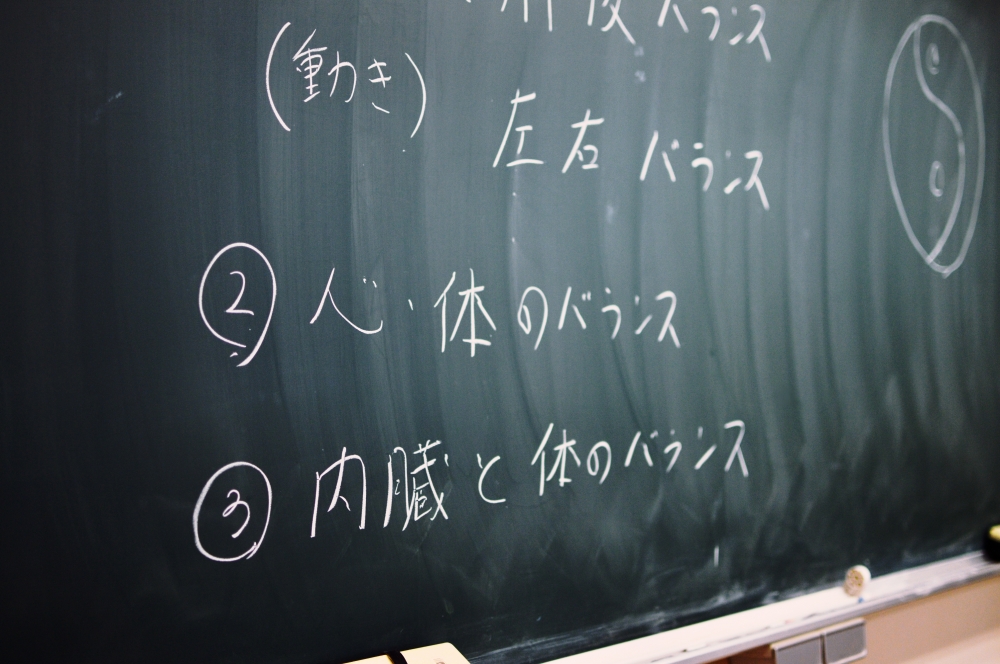 バランス
(動き)
左右バランス
② 心・体のバランス
③ 内臓と体のバランス